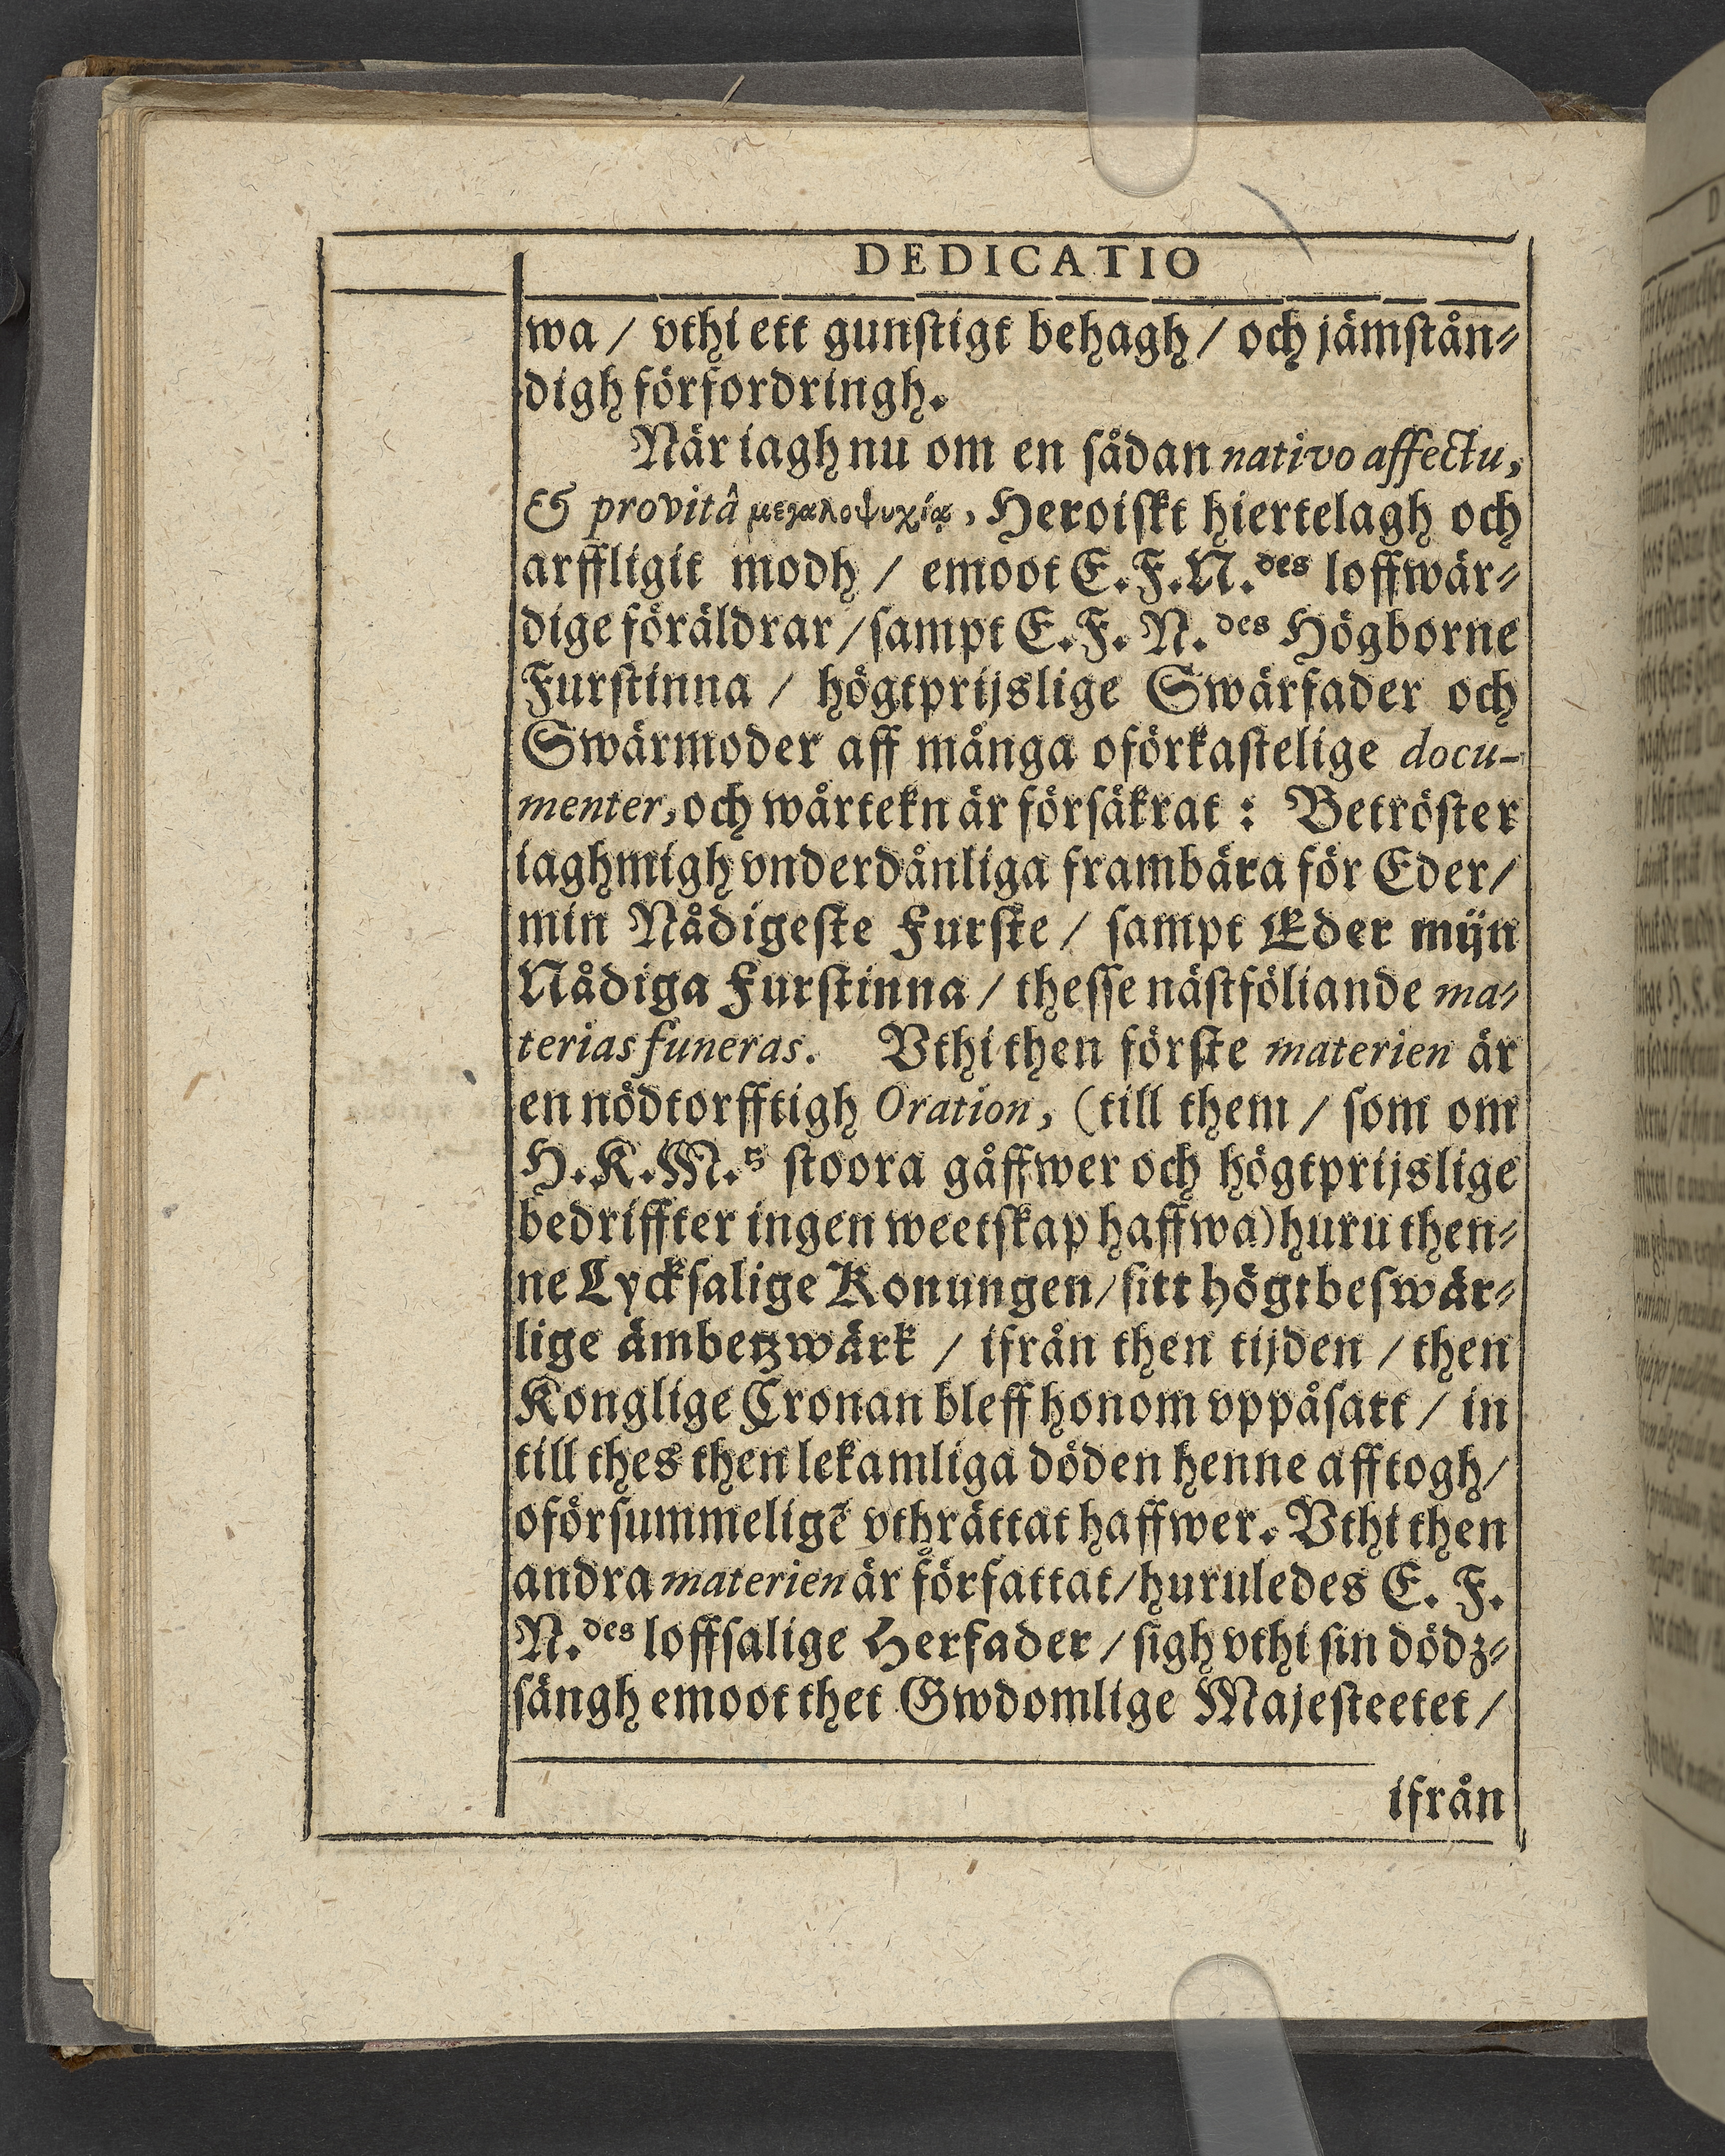 DEDICATIO
wa / vthi ett gunstigt behagh / och jämstån⸗
digh förfordringh.
När iagh nu om en sådan nativo affectu,
& provitâ μεγαλοψυχίᾳ, Heroiskt hiertelagh och
arffligit modh / emoot E.F.N.des loffwär⸗
dige föräldrar / sampt E.F. N.des Högborne
Furstinna / högtprijslige Swärfader och
Swärmoder aff många oförkastelige docu-
menter, och wårtekn är försäkrat : Betröster
iagh migh vnderdånliga frambära för Eder /
min Nådigeste Furste / sampt Eder mijn
Nådiga Furstinna / thesse nästföliande ma⸗
terias funeras. Vthi then förste materien är
en nödtorfftigh Oration, (till them / som om
H.K.M.s stoora gåffwer och högtprijslige
bedriffter ingen weetskap haffwa) huru then⸗
ne Lycksalige Konungen / sitt högtbeswär⸗
lige ämbetzwärk / ifrån then tijden / then
Konglige Cronan bleff honom vppåsatt / in
till thes then lekamliga döden henne afftogh /
oförsummeligē vthrättat haffwer. Vthi then
andra materien är författat / huruledes E. F.
N.des loffsalige Herfader / sigh vthi sin dödz⸗
sängh emoot thet Gwdomlige Majesteetet /
ifrån